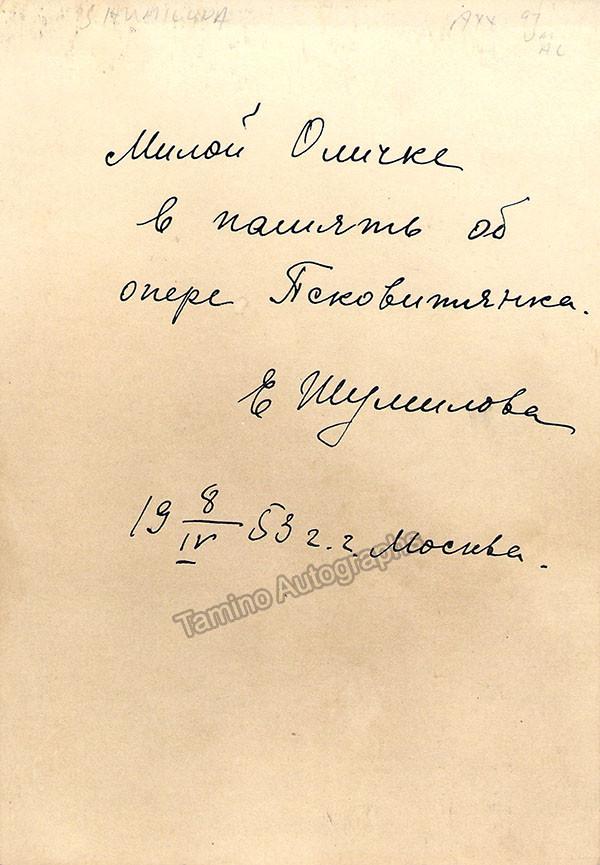 SHUMILOVA
Милой Оличке
в память об
опере Псковитянка.
Е Шумилова
19 8/IV 53 г. г. Москва.
Tamino Autographs